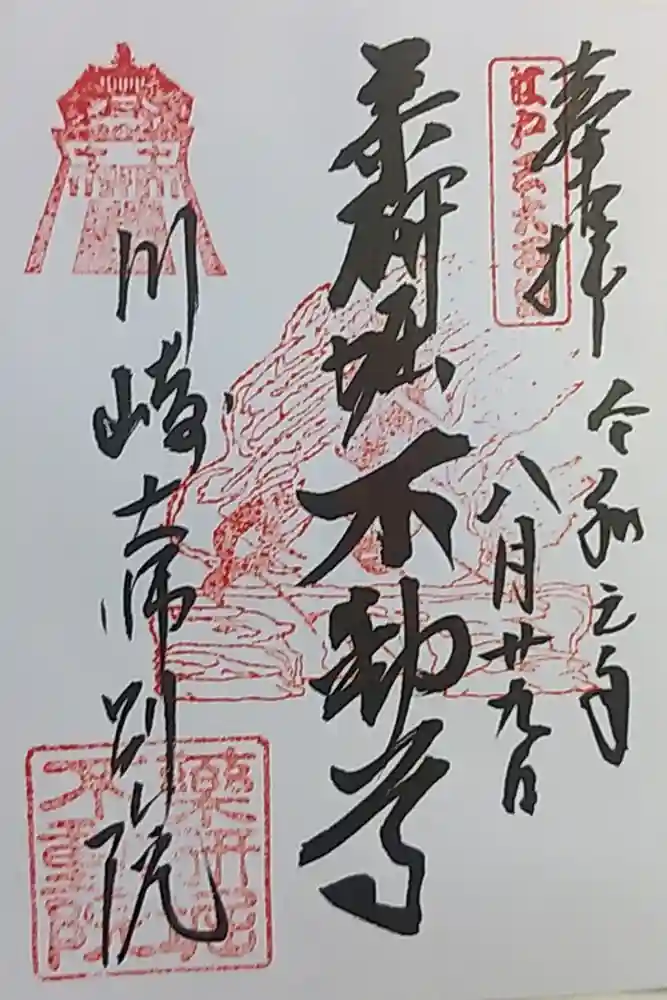 奉拝
令和元年
八月廿九日
江戸三大不動
薬研堀不動尊
川崎大師別院
薬研堀
不動院